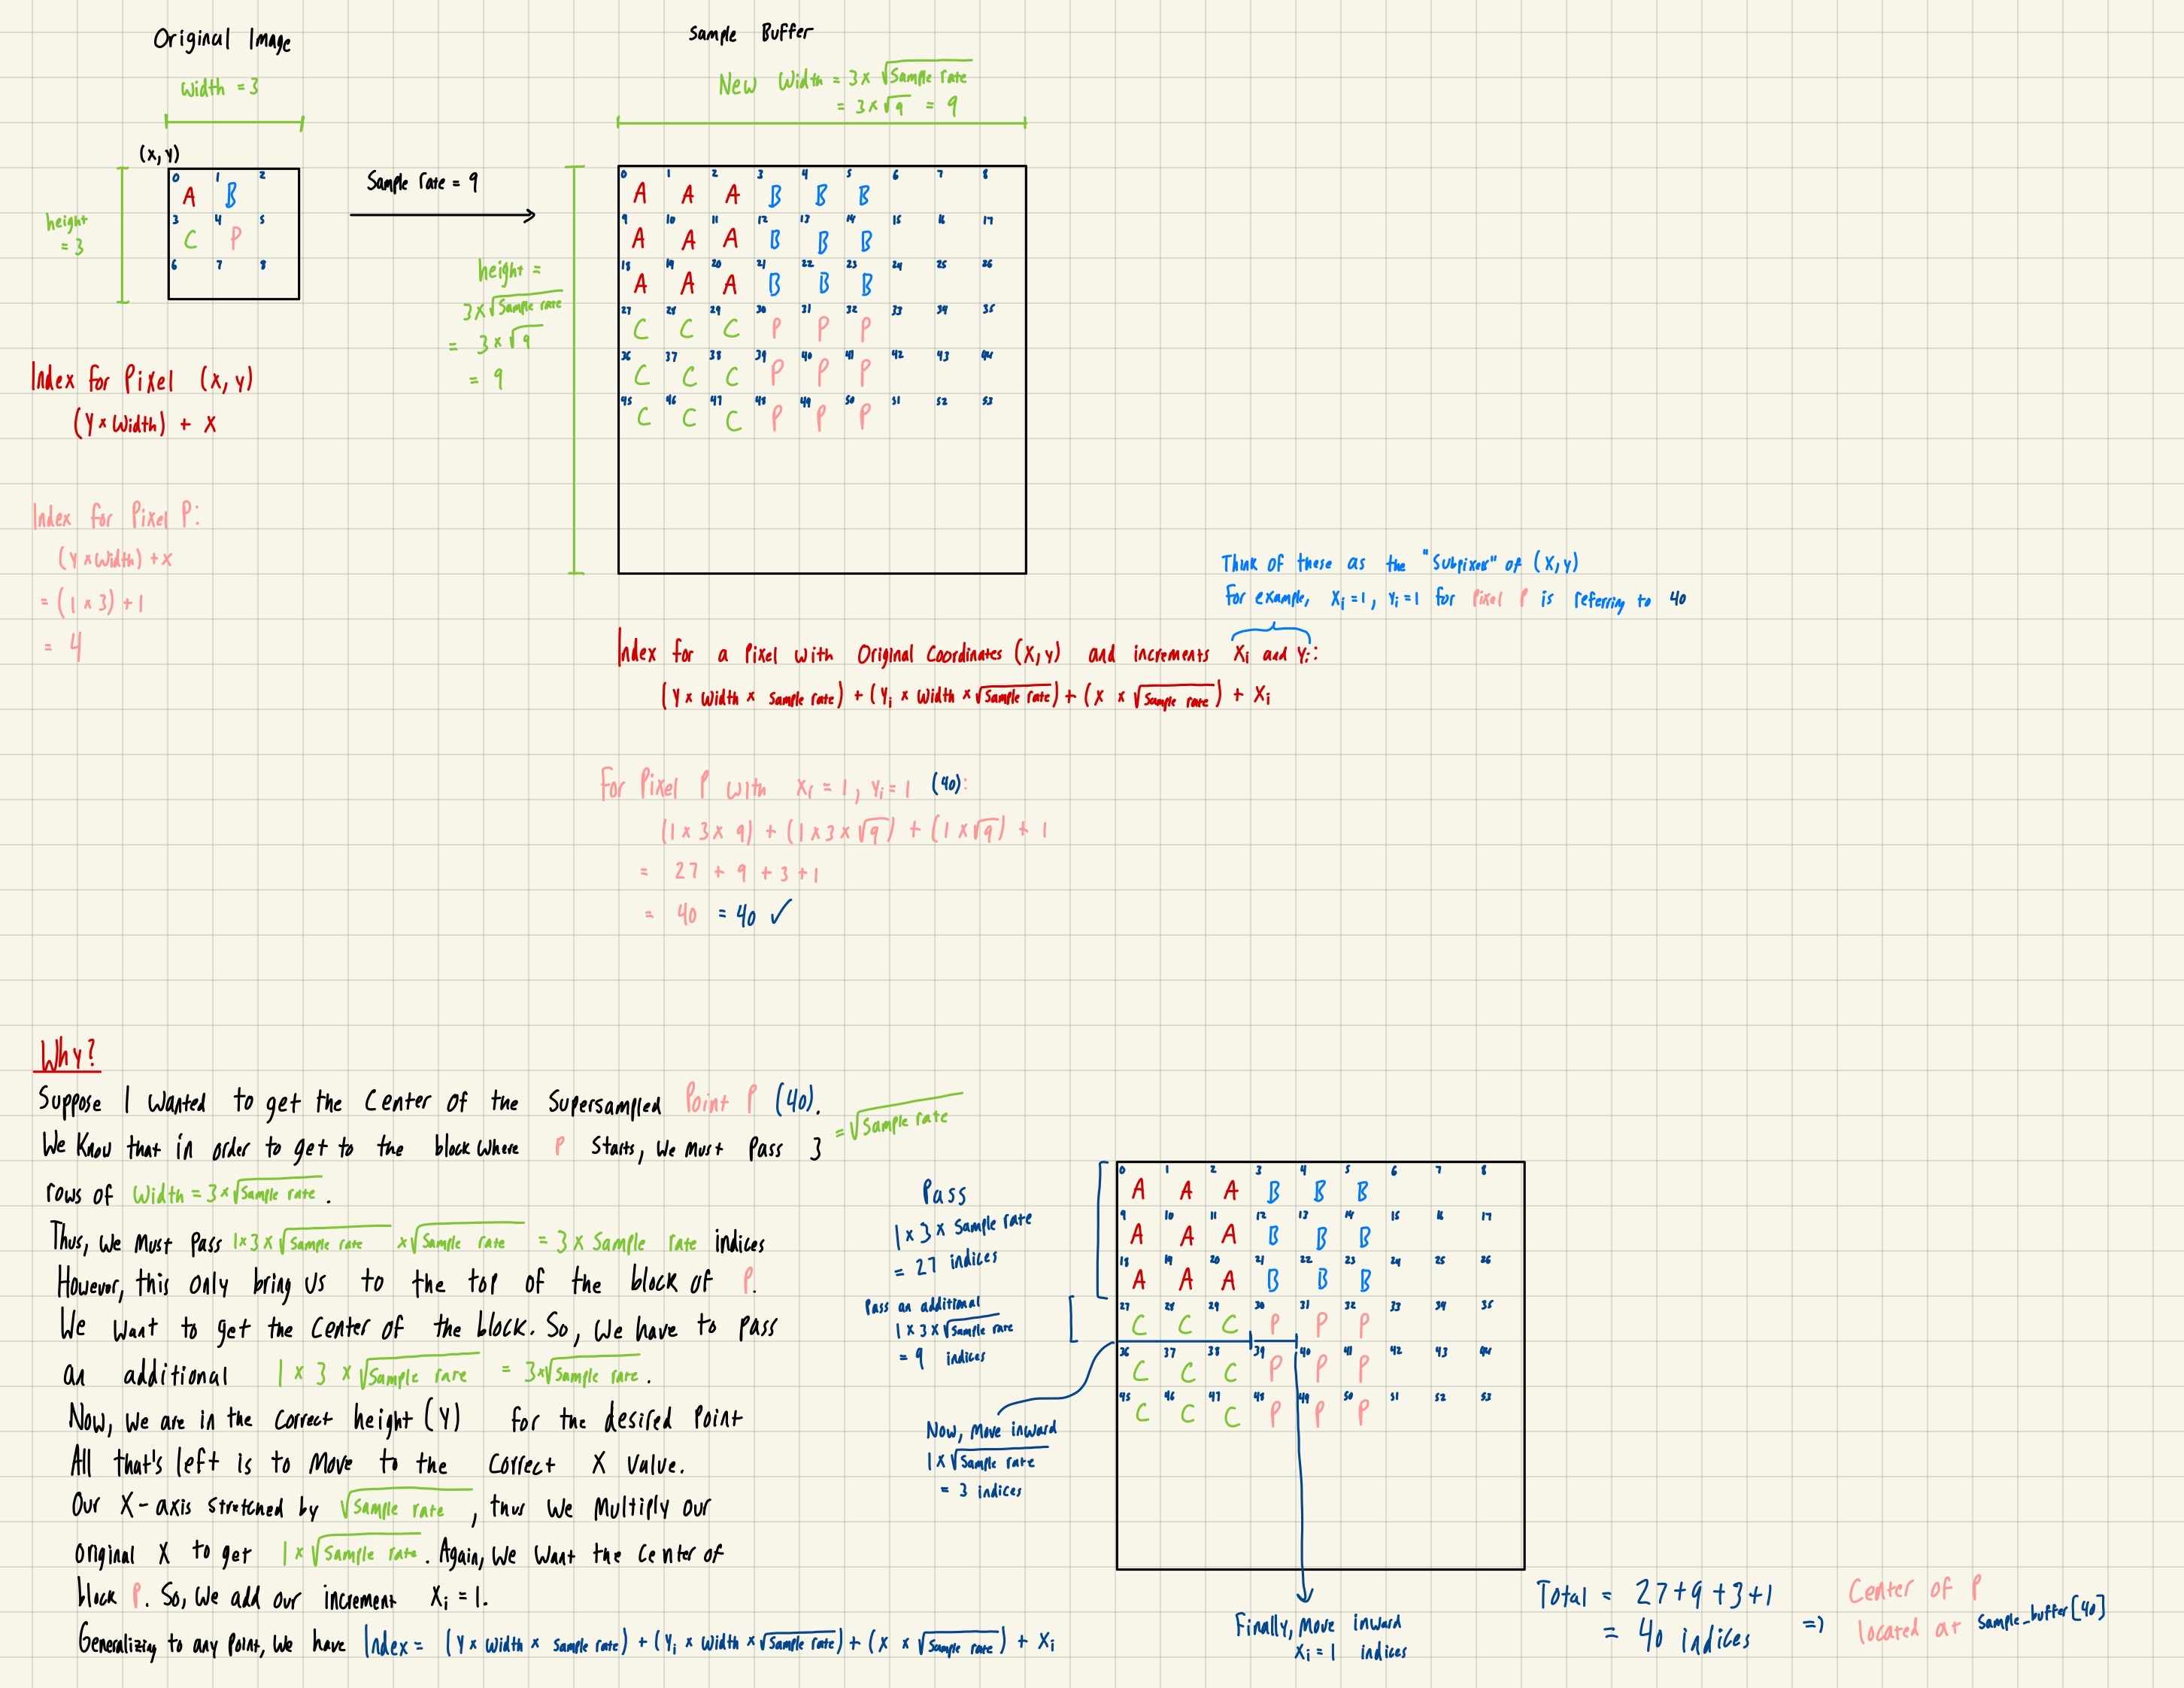 Original Image
Width = 3
(x, y)
height
= 3
0 1 2
A B
3 4 5
C P
6 7 8
Sample rate = 9
Sample Buffer
New Width = 3 × √Sample rate
= 3 × √9 = 9
height =
3 × √Sample rate
= 3 × √9
= 9
0 1 2 3 4 5 6 7 8
A A A B B B
9 10 11 12 13 14 15 16 17
A A A B B B
18 19 20 21 22 23 24 25 26
A A A B B B
27 28 29 30 31 32 33 34 35
C C C P P P
36 37 38 39 40 41 42 43 44
C C C P P P
45 46 47 48 49 50 51 52 53
C C C P P P
Index for Pixel (x, y)
(Y × Width) + X
Index for Pixel P:
(Y × Width) + X
= (1 × 3) + 1
= 4
Think of these as the "Subpixels" of (x, y)
For example, Xi = 1, Yi = 1 for Pixel P is referring to 40
Index for a Pixel with Original Coordinates (X, Y) and increments Xi and Yi:
(Y × Width × Sample rate) + (Yi × Width × √Sample rate) + (X × √Sample rate) + Xi
For Pixel P with Xi = 1, Yi = 1 (40):
(1 × 3 × 9) + (1 × 3 × √9) + (1 × √9) + 1
= 27 + 9 + 3 + 1
= 40 = 40 ✓
Why?
Suppose I wanted to get the Center of the Supersampled Point P (40).
We Know that in order to get to the block where P Starts, we Must Pass 3 = √Sample rate
rows of Width = 3 × √Sample rate.
Thus, we Must Pass 1×3×√Sample rate ×√Sample rate = 3 × Sample rate indices
However, this only bring us to the top of the block of P.
We Want to get the center of the block. So, we have to pass
an additional 1 × 3 × √Sample rate = 3×√Sample rate.
Now, we are in the correct height (Y) for the desired Point
All that's left is to Move to the Correct X value.
Our X-axis stretched by √Sample rate, thus we Multiply our
original X to get 1 × √Sample rate. Again, we want the center of
block P. So, we add our increment Xi = 1.
Generalizing to any point, we have Index = (Y × Width × Sample rate) + (Yi × Width × √Sample rate) + (X × √Sample rate) + Xi
Pass
1 × 3 × Sample rate
= 27 indices
Pass an additional
1 × 3 × √Sample rate
= 9 indices
Now, Move inward
1 × √Sample rate
= 3 indices
0 1 2 3 4 5 6 7 8
A A A B B B
9 10 11 12 13 14 15 16 17
A A A B B B
18 19 20 21 22 23 24 25 26
A A A B B B
27 28 29 30 31 32 33 34 35
C C C P P P
36 37 38 39 40 41 42 43 44
C C C P P P
45 46 47 48 49 50 51 52 53
C C C P P P
Finally, Move inward
Xi = 1 indices
Total = 27+9+3+1
= 40 indices
=>
Center of P
located at sample_buffer[40]